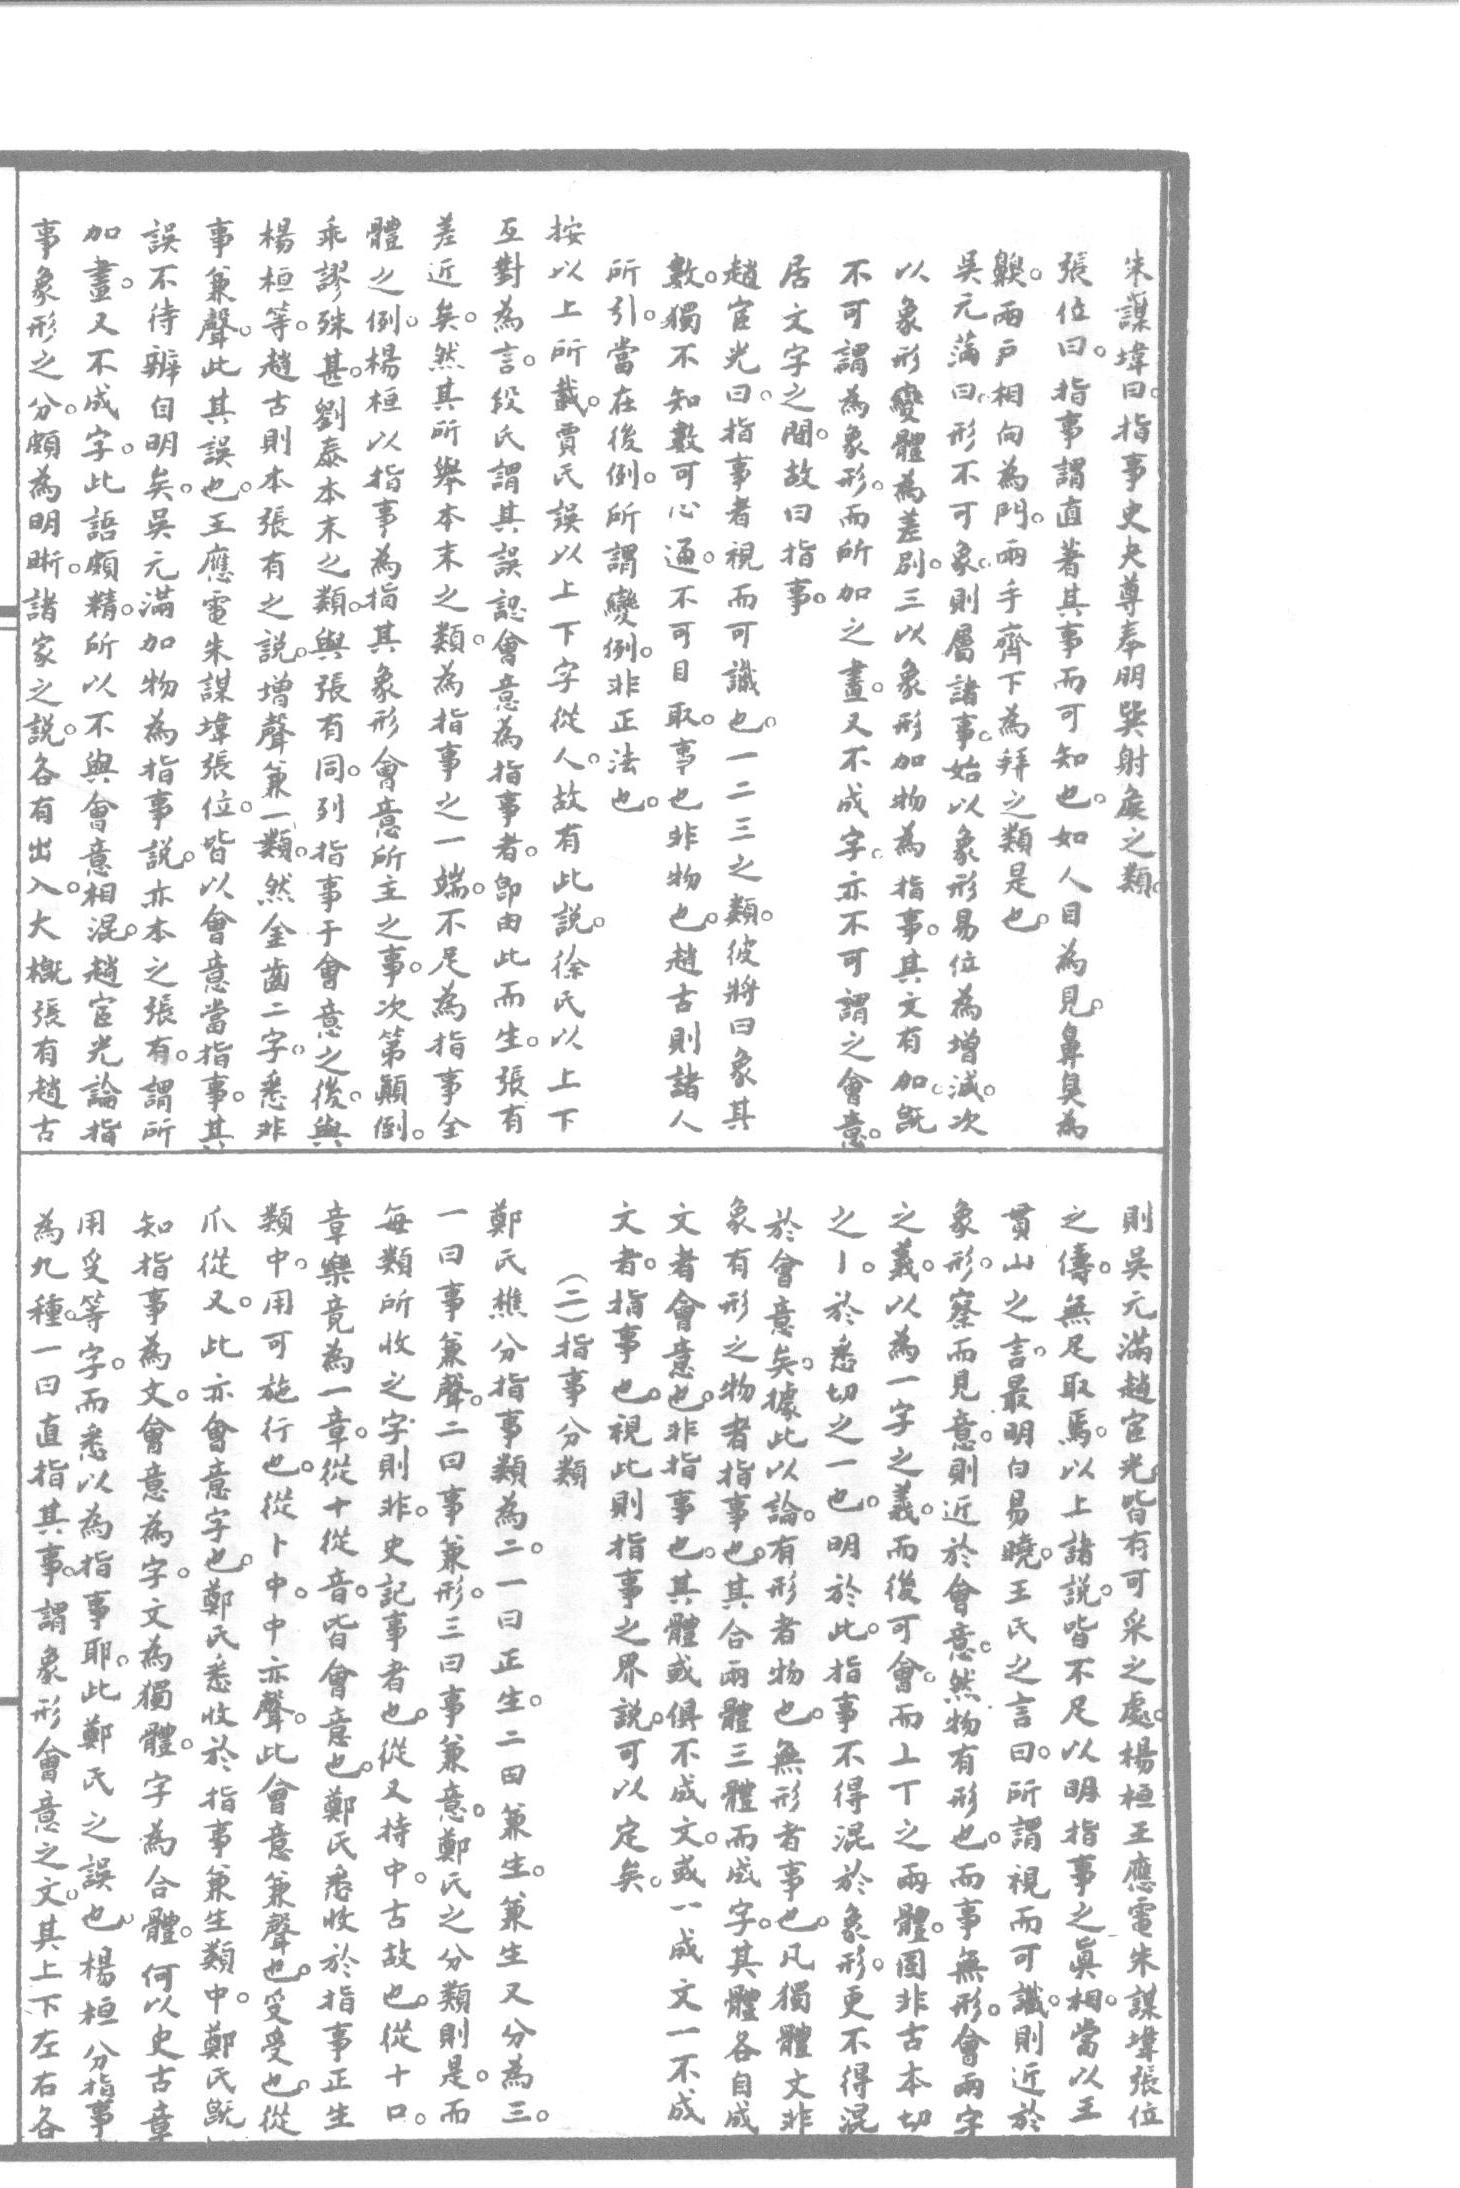 朱謀㙔曰。指事史夬尊奉明㢲射矦之類。
張位曰。指事謂直著其事而可知也。如人目為見。鼻臭為
齅。兩戶相向為門。兩手齊下為拜之類是也。
吳元滿曰。形不可象。則屬諸事。始以象形易位為增減。次
以象形變體為差别。三以象形加物為指事。其文有加。旣
不可謂為象形。而所加之畫。又不成字。亦不可謂之會意。
居文字之間。故曰指事。
趙宧光曰。指事者視而可識也。一二三之類。彼將曰象其
數。獨不知數可心通。不可目取。事也非物也。趙古則諸人
所引。當在後例。所謂變例。非正法也。
按以上所載。賈氏誤以上下字從人。故有此説。徐氏以上下
互對為言。段氏謂其誤認會意為指事者。卽由此而生。張有
差近矣。然其所舉本末之類。為指事之一端。不足為指事全
體之例。楊桓以指事為指其象形會意所主之事。次第顚倒。
乖謬殊甚。劉泰本末之類。與張有同。列指事于會意之後。與
楊桓等。趙古則本張有之説。增聲兼一類。然金齒二字。悉非
事兼聲。此其誤也。王應電朱謀㙔張位。皆以會意當指事。其
誤不待辨自明矣。吳元滿加物為指事説。亦本之張有。謂所
加畫。又不成字。此語頗精。所以不與會意相混。趙宧光論指
事象形之分。頗為明晰。諸家之説。各有出入。大槪張有趙古
則吳元滿趙宧光。皆有可采之處。楊桓王應電朱謀㙔張位
之儔。無足取焉。以上諸説。皆不足以明指事之眞相。當以王
貫山之言。最明白易曉。王氏之言曰。所謂視而可識。則近於
象形。察而見意。則近於會意。然物有形也。而事無形。會兩字
之義。以為一字之義。而後可會。而上丅之兩體。固非古本切
之丨。於悉切之一也。明於此。指事不得混於象形。更不得混
於會意矣。據此以論。有形者物也。無形者事也。凡獨體文非
象有形之物者指事也。其合兩體三體而成字。其體各自成
文者會意也。非指事也。其體或俱不成文。或一成文一不成
文者。指事也。視此則指事之界説。可以定矣。
(二)指事分類
鄭氏樵分指事類為二。一曰正生。二曰兼生。兼生又分為三。
一曰事兼聲。二曰事兼形。三曰事兼意。鄭氏之分類則是。而
每類所收之字則非。史記事者也。從又持中。古故也。從十口。
章樂竟為一章。從十從音。皆會意也。鄭氏悉收於指事正生
類中。用可施行也。從卜中。中亦聲。此會意兼聲也。受受也。從
爪從又。此亦會意字也。鄭氏悉收於指事兼生類中。鄭氏旣
知指事為文。會意為字。文為獨體。字為合體。何以史古章
用受等字。而悉以為指事耶。此鄭氏之誤也。楊桓分指事
為九種。一曰直指其事。謂象形會意之文。其上下左右各